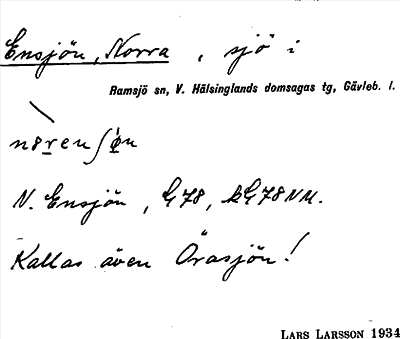 Ensjön, Norra, sjö i
Ramsjö sn, V. Hälsinglands domsagas tg, Gävleb. l.
N. Ensjön, G78, bG78NM.
Kallas även Örasjön!
LARS LARSSON 1934